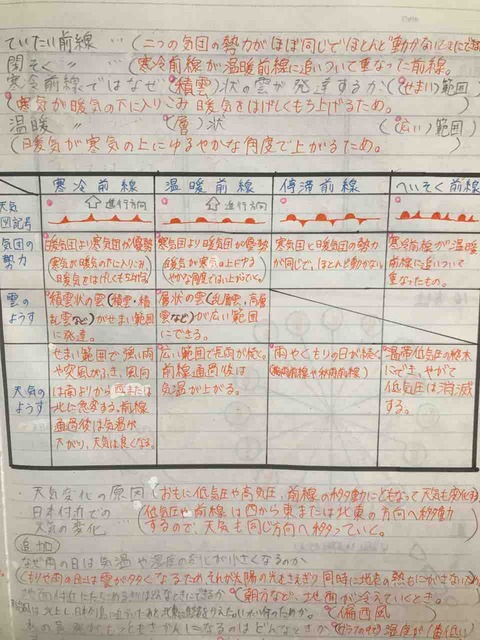 ていたい前線 … (二つの気団の勢力がほぼ同じでほとんど動かない
閉そく 〃 (寒冷前線が温暖前線に追いついて重なった前線。
寒冷前線ではなぜ(積雲)状の雲が発達するか (せまい)範囲
(寒気が暖気の下に入りこみ 暖気をはげしくもち上げるため。
温暖 〃 (層)状 (広い)範囲
(暖気が寒気の上にゆるやかな角度で上がるため。
寒冷前線 温暖前線 停滞前線 へいそく前線
天気図記号 進行方向 進行方向
気団の勢力
暖気団より寒気団が優勢
(寒気が暖気の下に入りこみ、
暖気をはげしくもち上げる)
寒気団より暖気団が優勢
(暖気が寒気の上をゆる
やかな角度ではい上がっていく。)
寒気団と暖気団の勢力
が同じで、ほとんど動かない。
寒冷前線が温暖
前線に追いついて
重なったもの。
雲のようす
積雲状の雲(積雲・積
乱雲など)がせまい範囲
に発達。
層状の雲(乱層雲、高層
雲など)が広い範囲
にできる。
天気のようす
せまい範囲で強い雨
や突風がふき、風向
は南よりから西または
北に急変する。前線
通過後は気温が
下がり、天気は良くなる。
広い範囲で長雨が続く。
前線通過後は
気温が上がる。
雨やくもりの日が続く
(梅雨前線や秋雨前線)
温帯低気圧の終末
にでき、やがて
低気圧は消滅
する。
・天気変化の原因 (おもに低気圧や高気圧、前線の移動にともなって天気も変化する
日本付近での
天気の変化 … (低気圧や前線は西から東または北東の方向へ移動
するので、天気も同じ方向へ移っていく。
追加
なぜ雨の日は気温や湿度の変化が小さくなるのか
(くもりや雨の日は雲が厚くなるため、それが太陽の光をさえぎり同時に地表の熱もにがさないため
(朝方など、地面が冷えているとき。
(偏西風)